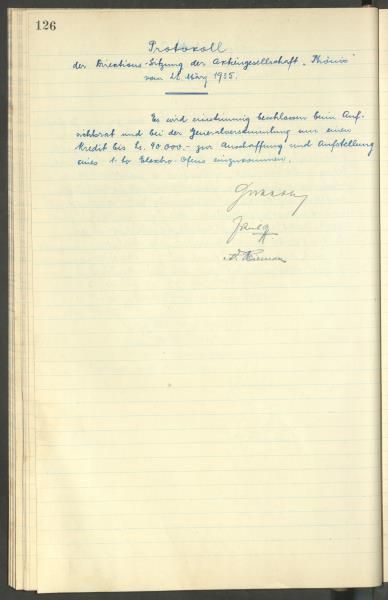 126
Protokoll
der Direktions-Sitzung der Aktiengesellschaft "Phönix"
vom 21. März 1935.
Es wird einstimmig beschlossen beim Auf-
sichtsrat und bei der Generalversammlung um einen
Kredit bis Ls. 90.000.- zur Anschaffung und Aufstellung
eines 1.to Elektro-Ofens einzukommen.